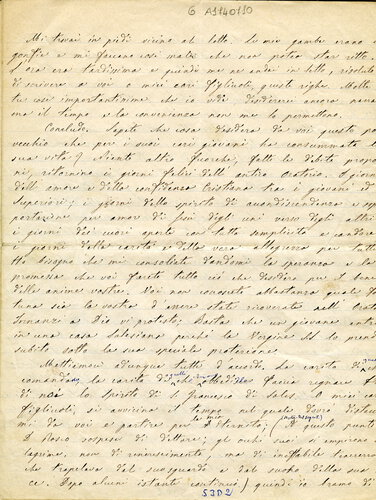 6 A1140110
Mi trovai in piedi vicino al letto. Le mie gambe erano
gonfie e mi facevano così male che non potea star ritto.
L'ora era tardissima e quindi me ne andai in letto, risoluto
di scrivere a voi o miei cari figliuoli, queste righe. Molte
cose importantissime che io desidererei ancora
ma il tempo e la convenienza non me lo permettono.
Concludo. Sapete che cosa desidera da voi questo povero
vecchio che per i suoi cari giovani ha consumata
sua vita? Niente altro fuorché, fatte le debite
ni, ritornino i giorni felici dell'antico Oratorio. I giorni
dell'amore e della confidenza Cristiana tra i giovani ed
Superiori; i giorni dello spirito di accondiscendenza e
portazione per amor di Gesù degli uni verso degli altri
i giorni dei cuori aperti con tutta semplicità e candore
i giorni della carità e della vera allegrezza per tutti
Ho bisogno che mi consolate dandomi la speranza e la
promessa che voi farete tutto ciò che desidero per il bene
delle anime vostre. Voi non conoscete abbastanza quale
tuna sia la vostra d'essere stati ricoverati nell'
Innanzi a Dio vi protesto; Basta che un giovane entri
in una casa Salesiana perché la Vergine SS. lo prenda
subito sotto la sua speciale protezione.
Mettiamoci adunque tutti d'accordo. La carità di
comandano, la carità di faccia regnare fra
di noi lo spirito di S. Francesco di Sales. O miei cari
figliuoli, si avvicina il tempo nel quale dovrò
mi da voi e partire per la mia Eternità.
D. Bosco sospese di dettare; gli occhi suoi si empirono di
lagrime, non di rincrescimento, ma di ineffabile tenerezza
che trapelava dal suo sguardo e dal suono della sua
ce. Dopo alcuni istanti continuò) quindi io bramo di
53D2